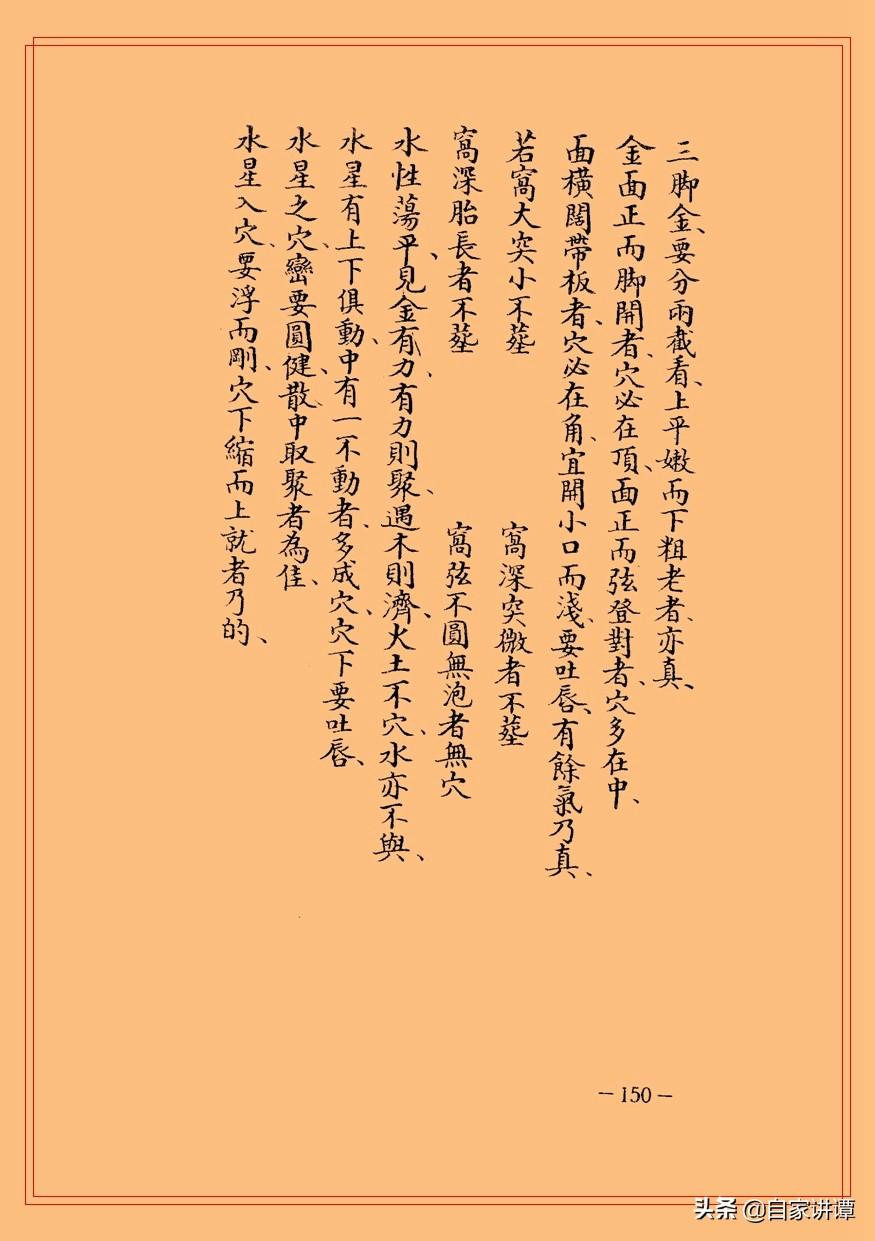 三脚金、要分兩截看、上平嫩而下粗老者、亦真、
金面正而脚開者、穴必在頂、面正而弦登對者、穴多在中、
面橫闊帶板者、穴必在角、宜開小口而淺、要吐唇、有餘氣乃真、
若窩大突小不塟
窩深突微者不塟
窩深胎長者不塟
窩弦不圓無泡者無穴
水性蕩平、見金有力、有力則聚、遇木則濟、火土不穴、水亦不與、
水星有上下俱動、中有一不動者、多成穴、穴下要吐唇、
水星之穴、巒要圓健、散中取聚者為佳、
水星入穴、要浮而剛、穴下縮而上就者乃的、
－150－
头条 @自家讲谭